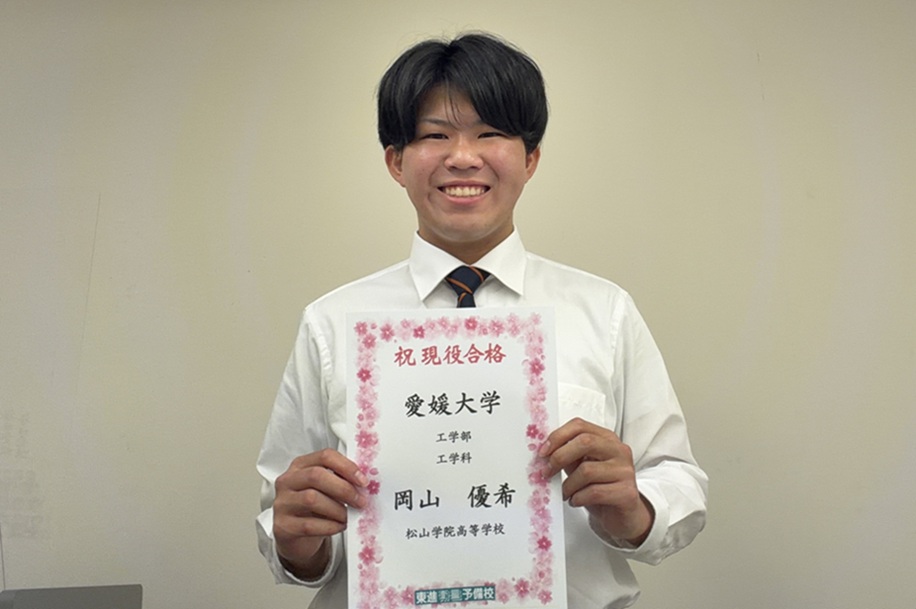 祝 現役合格
愛媛大学
工学部
工学科
岡山　優希
松山学院高等学校
東進衛星予備校